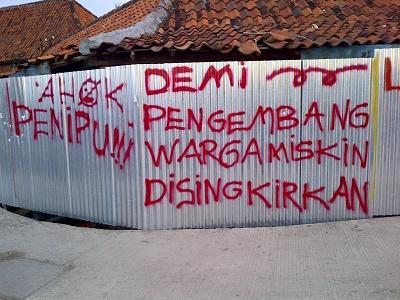 AHOK
PENIPU!!!
DEMI
PENGEMBANG
WARGA MISKIN
DISINGKIRKAN
L